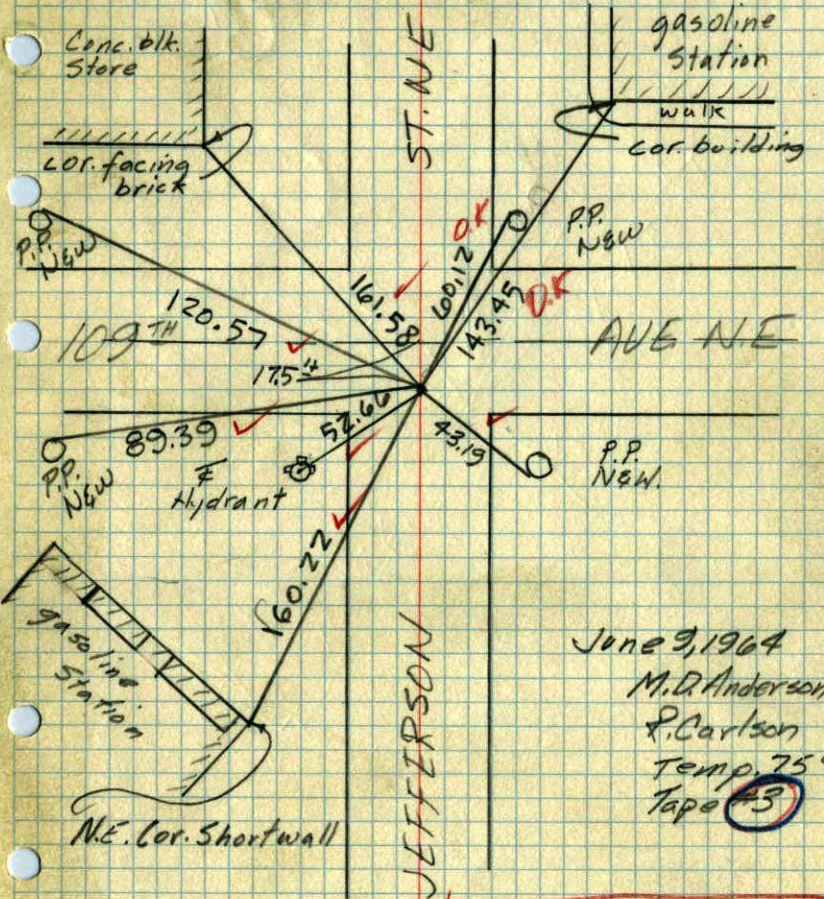 Conc. blk.
Store
cor. facing
brick
ST. NE
gasoline
Station
walk
cor. building
P.P.
N&W
P.P.
N&W
O.K
161.58
60.12
143.45
O.K
120.57
109TH
AVE N.E
17.5
89.39
52.66
43.19
P.P.
N&W
Hydrant
P.P.
N&W.
160.22
gasoline
Station
N.E. Cor. Shortwall
JEFFERSON
June 9, 1964
M.D. Anderson
P. Carlson
Temp. 75°
Tape #3